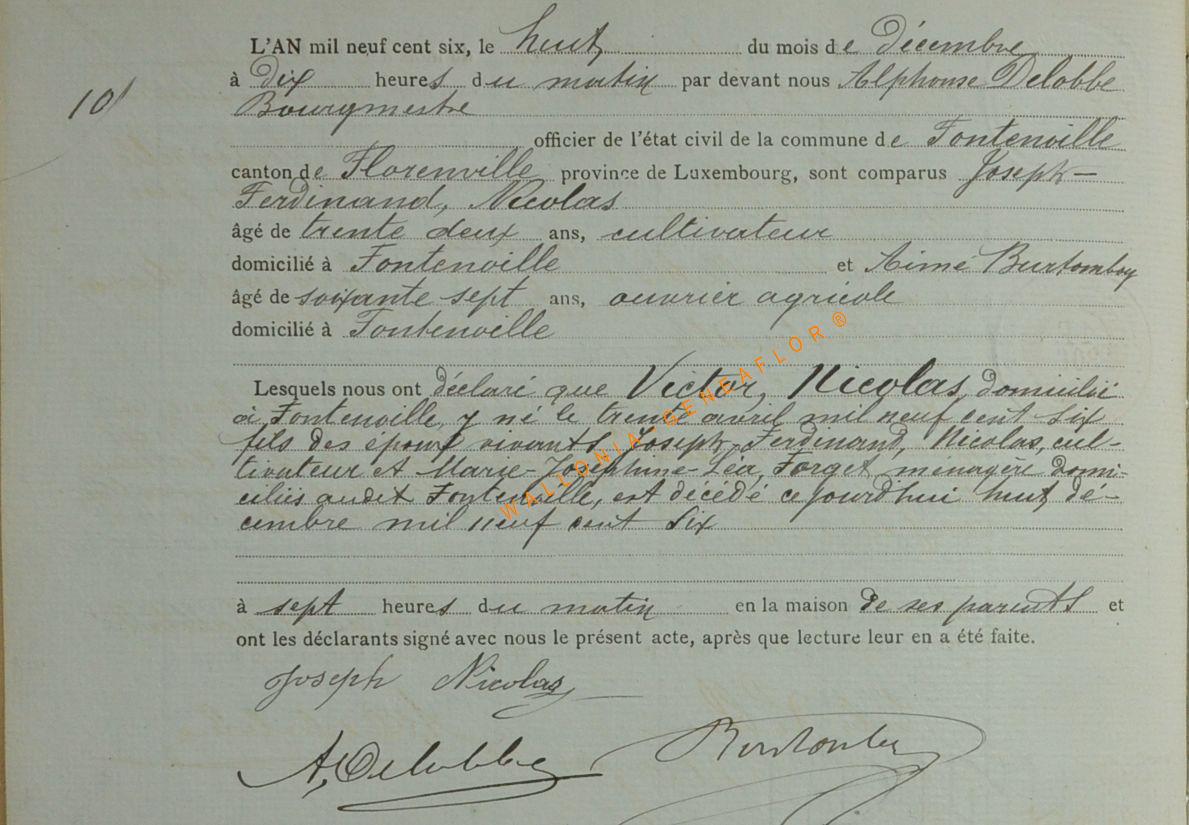 L'AN mil neuf cent six, le huit du mois de décembre
à dix heures du matin par devant nous Alphonse Delobbe
10
Bourgmestre
officier de l'état civil de la commune de Fontenoille
canton de Florenville province de Luxembourg, sont comparus Joseph-
Ferdinand, Nicolas
âgé de trente deux ans, cultivateur
domicilié à Fontenoille et Aimé Burtomboy
âgé de soixante sept ans, ouvrier agricole
domicilié à Fontenoille
Lesquels nous ont déclaré que Victor, Nicolas, domicilié
à Fontenoille, y né le trente avril mil neuf cent six
fils des époux vivants Joseph-Ferdinand, Nicolas, cul-
tivateur et Marie-Joséphine-Léa, Forget, ménagère domi-
ciliés audit Fontenoille, est décédé ce jourd'hui huit dé-
cembre mil neuf cent six
WALLONIA GENEAFLOR ®
à sept heures du matin en la maison de ses parents et
ont les déclarants signé avec nous le présent acte, après que lecture leur en a été faite.
Joseph Nicolas
A, Delobbe Burtomboy